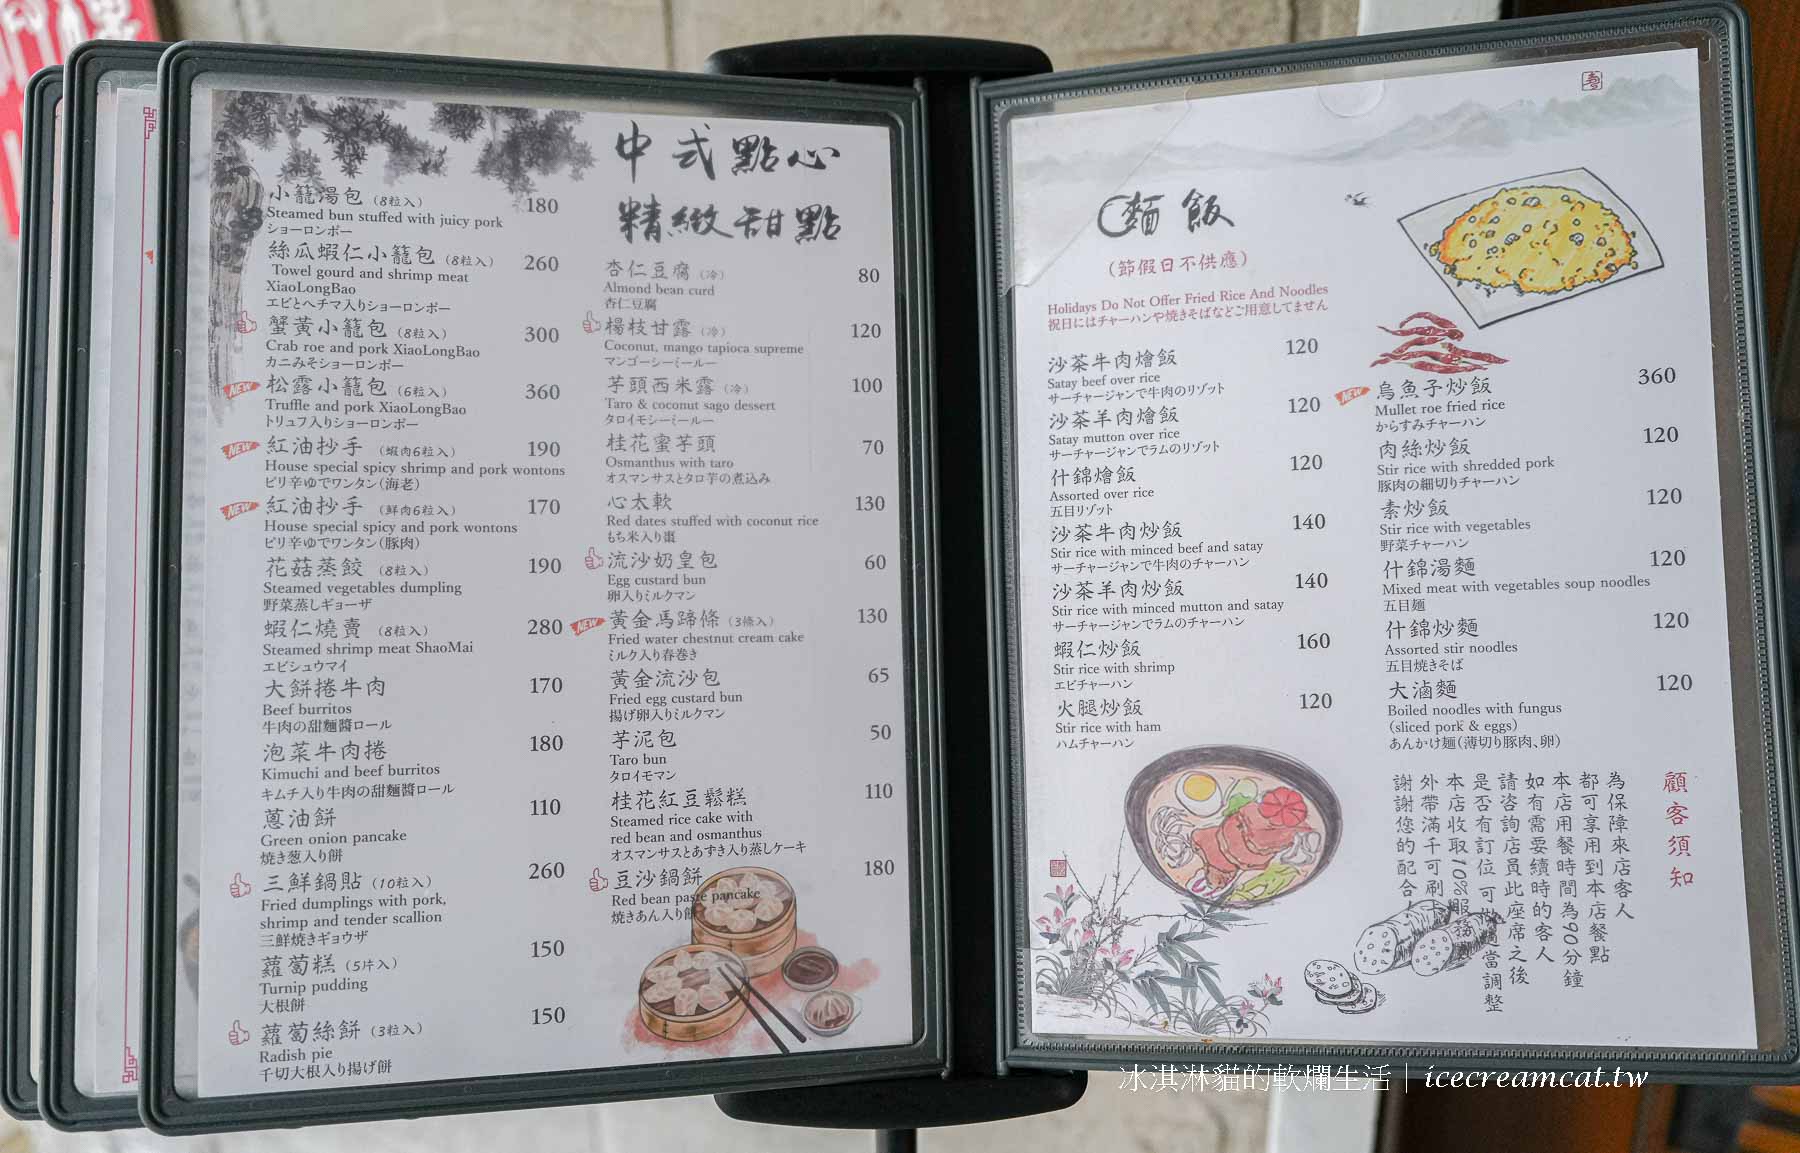 中式點心
精緻甜點
小籠湯包 (8粒入) 180
Steamed bun stuffed with juicy pork
ショーロンポー
絲瓜蝦仁小籠包 (8粒入) 260
Towel gourd and shrimp meat
XiaoLongBao
エビとヘチマ入りショーロンポー
蟹黃小籠包 (8粒入) 300
Crab roe and pork XiaoLongBao
カニみそショーロンポー
NEW 松露小籠包 (6粒入) 360
Truffle and pork XiaoLongBao
トリュフ入りショーロンポー
NEW 紅油抄手 (蝦肉6粒入) 190
House special spicy shrimp and pork wontons
ピリ辛ゆでワンタン(海老)
NEW 紅油抄手 (鮮肉6粒入) 170
House special spicy and pork wontons
ピリ辛ゆでワンタン(豚肉)
花菇蒸餃 (8粒入) 190
Steamed vegetables dumpling
野菜蒸しギョーザ
蝦仁燒賣 (8粒入) 280
Steamed shrimp meat ShaoMai
エビシュウマイ
大餅捲牛肉 170
Beef burritos
牛肉の甜麵醬ロール
泡菜牛肉捲 180
Kimuchi and beef burritos
キムチ入り牛肉の甜麵醬ロール
蔥油餅 110
Green onion pancake
焼き葱入り餅
三鮮鍋貼 (10粒入) 260
Fried dumplings with pork,
shrimp and tender scallion
三鮮焼きギョウザ
蘿蔔糕 (5片入) 150
Turnip pudding
大根餅
蘿蔔絲餅 (3粒入) 150
Radish pie
千切大根入り揚げ餅
杏仁豆腐 (冷) 80
Almond bean curd
杏仁豆腐
楊枝甘露 (冷) 120
Coconut, mango tapioca supreme
マンゴーシーミールー
芋頭西米露 (冷) 100
Taro & coconut sago dessert
タロイモシーミールー
桂花蜜芋頭 70
Osmanthus with taro
オスマンサスとタロ芋の煮込み
心太軟 130
Red dates stuffed with coconut rice
もち米入り棗
流沙奶皇包 60
Egg custard bun
卵入りミルクマン
NEW 黃金馬蹄條 (3條入) 130
Fried water chestnut cream cake
ミルク入り春巻き
黃金流沙包 65
Fried egg custard bun
揚げ卵入りミルクマン
芋泥包 50
Taro bun
タロイモマン
桂花紅豆鬆糕 110
Steamed rice cake with
red bean and osmanthus
オスマンサスとあずき入り蒸しケーキ
豆沙鍋餅 180
Red bean paste pancake
焼きあん入り餅
麵飯
(節假日不供應)
Holidays Do Not Offer Fried Rice And Noodles
祝日にはチャーハンや焼きそばなどご用意してません
沙茶牛肉燴飯 120
Satay beef over rice
サーチャージャンで牛肉のリゾット
沙茶羊肉燴飯 120
Satay mutton over rice
サーチャージャンでラムのリゾット
什錦燴飯 120
Assorted over rice
五目リゾット
沙茶牛肉炒飯 140
Stir rice with minced beef and satay
サーチャージャンで牛肉のチャーハン
沙茶羊肉炒飯 140
Stir rice with minced mutton and satay
サーチャージャンでラムのチャーハン
蝦仁炒飯 160
Stir rice with shrimp
エビチャーハン
火腿炒飯 120
Stir rice with ham
ハムチャーハン
NEW 烏魚子炒飯 360
Mullet roe fried rice
からすみチャーハン
肉絲炒飯 120
Stir rice with shredded pork
豚肉の細切りチャーハン
素炒飯 120
Stir rice with vegetables
野菜チャーハン
什錦湯麵 120
Mixed meat with vegetables soup noodles
五目麺
什錦炒麵 120
Assorted stir noodles
五目焼きそば
大滷麵 120
Boiled noodles with fungus
(sliced pork & eggs)
あんかけ麺(薄切り豚肉、卵)
顧客須知
為保障來店客人
都可享用到本店餐點
本店用餐時間為90分鐘
如有需要續時的客人
請咨詢店員此座席之後
是否有訂位 可做適當調整
本店收取10%服務費
外帶滿千可刷卡
謝謝您的配合
冰淇淋貓的軟爛生活 | icecreamcat.tw